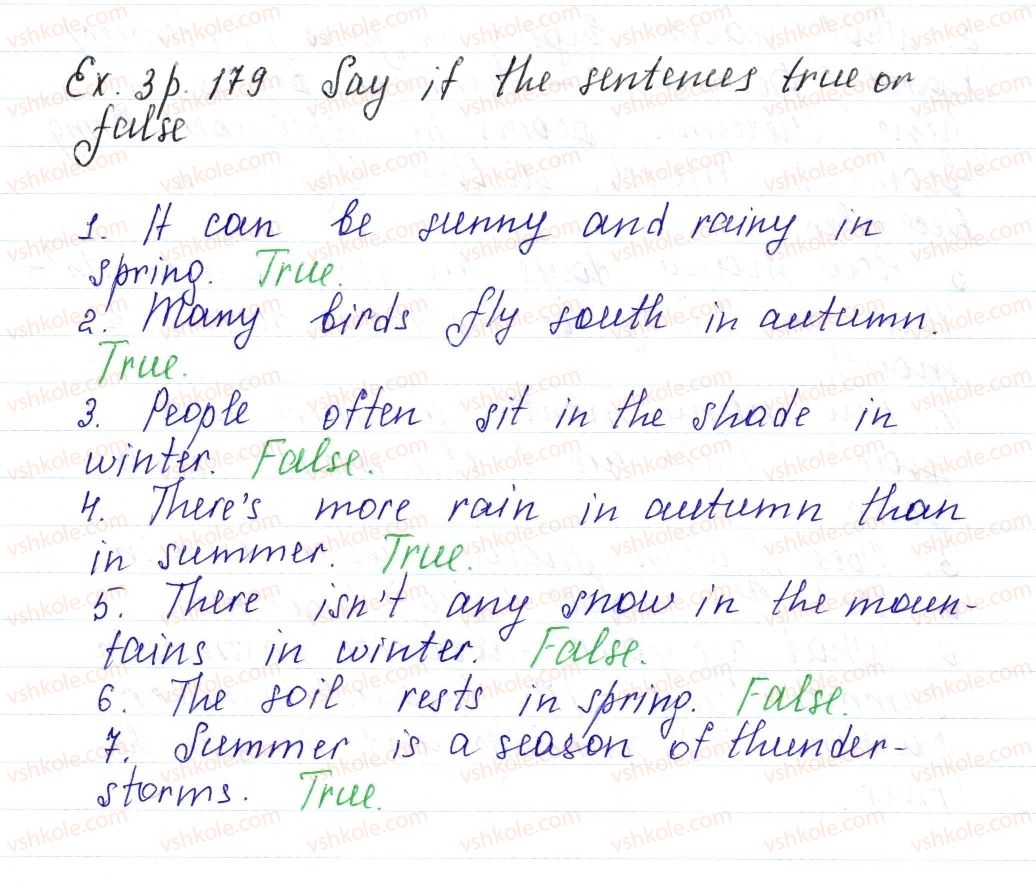 Ex. 3 p. 179 Say if the sentences true or
false
1. It can be sunny and rainy in
spring. True.
2. Many birds fly south in autumn.
True.
3. People often sit in the shade in
winter. False.
4. There's more rain in autumn than
in summer. True.
5. There isn't any snow in the moun-
tains in winter. False.
6. The soil rests in spring. False.
7. Summer is a season of thunder-
storms. True.